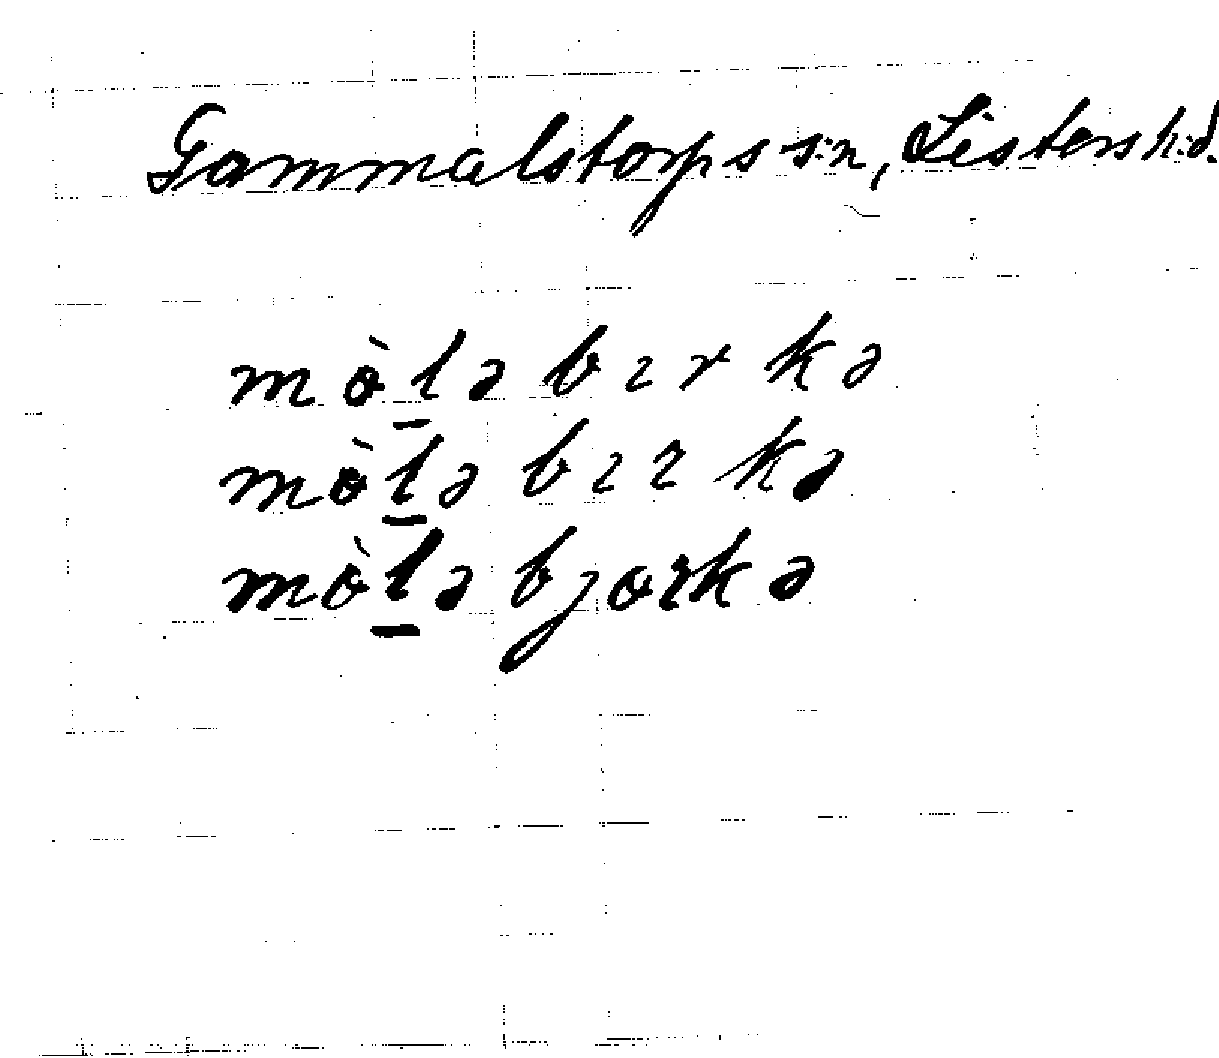 Gammalstorps s:n, Listers h:d.
mòl̲ə bɪrkə
mòl̲ə bɪrkə
mòl̲ə bjorkə